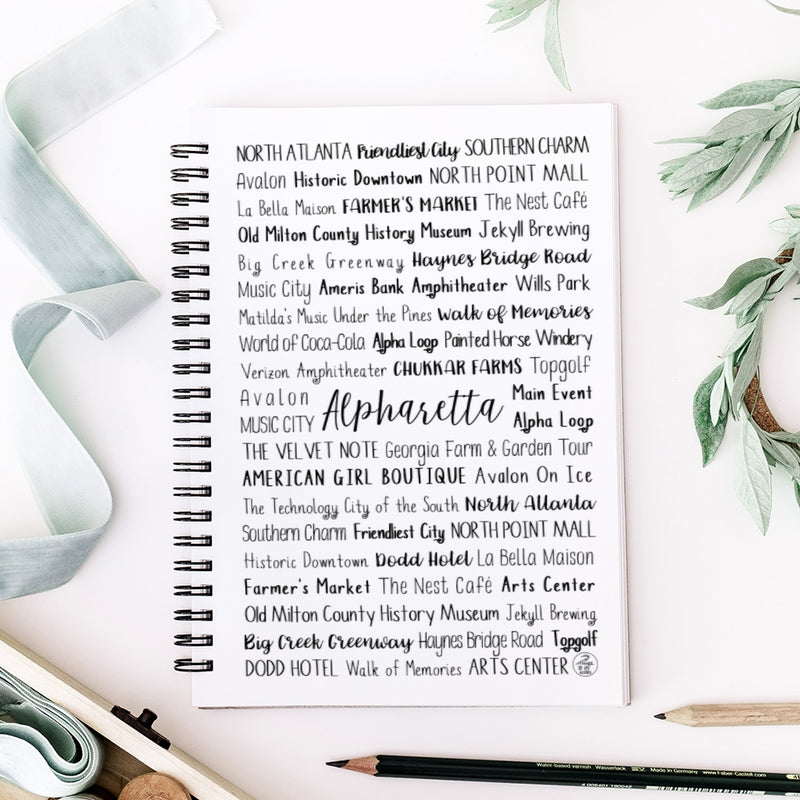 NORTH ATLANTA Friendliest City SOUTHERN CHARM
Avalon Historic Downtown NORTH POINT MALL
La Bella Maison FARMER'S MARKET The Nest Café
Old Milton County History Museum Jekyll Brewing
Big Creek Greenway Haynes Bridge Road
Music City Ameris Bank Amphitheater Wills Park
Matilda's Music Under the Pines Walk of Memories
World of Coca-Cola Alpha Loop Painted Horse Windery
Verizon Amphitheater CHUKKAR FARMS Topgolf
Avalon
MUSIC CITY
Alpharetta
Main Event
Alpha Loop
THE VELVET NOTE Georgia Farm & Garden Tour
AMERICAN GIRL BOUTIQUE Avalon On Ice
The Technology City of the South North Atlanta
Southern Charm Friendliest City NORTH POINT MALL
Historic Downtown Dodd Hotel La Bella Maison
Farmer's Market The Nest Café Arts Center
Old Milton County History Museum Jekyll Brewing
Big Creek Greenway Haynes Bridge Road Topgolf
DODD HOTEL Walk of Memories ARTS CENTER
Water-based varnish Wasserlack Made in Germany www.Faber-Castell.com